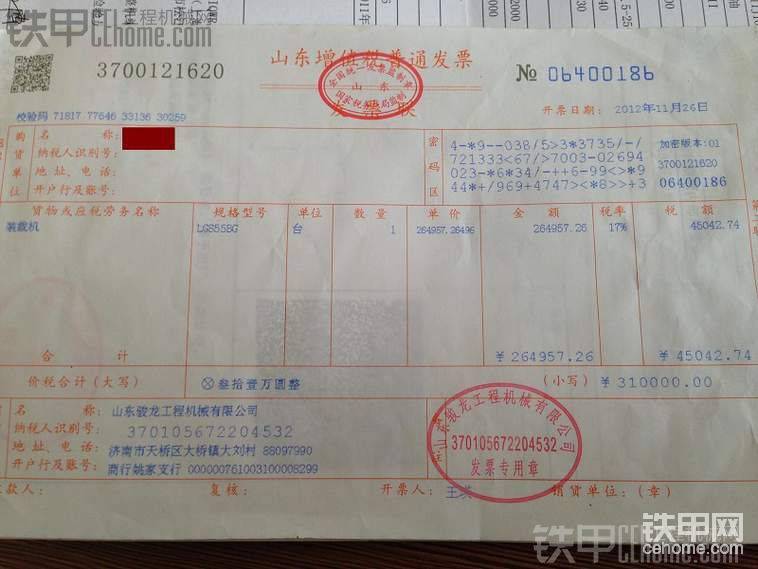 铁甲工程机械
cehome.com
3700121620
山东增值税普通发票
全国统一发票监制章
山东
国家税务局监制
发票联
№ 06400186
开票日期: 2012年11月26日
校验码 71817 77646 33136 30259
购货单位
名 称:
纳税人识别号:
地 址、电 话:
开户行及账号:
密码区
4-*9--038/5>3*3735/-/
721333<67/>7003-02694
023-*6*34/-++6-99<>*9
44*+/969+4747><*8>>+3
加密版本:01
3700121620
06400186
货物或应税劳务名称 规格型号 单位 数 量 单 价 金 额 税率 税 额
装载机 LG855BG 台 1 264957.26496 264957.26 17% 45042.74
合 计 ￥264957.26 ￥45042.74
价税合计(大写) ⊗叁拾壹万圆整 (小写) ￥310000.00
名 称: 山东骏龙工程机械有限公司
纳税人识别号: 370105672204532
地 址、电 话: 济南市天桥区大桥镇大刘村 88097990
开户行及账号: 商行姚家支行 000000761003100008299
山东骏龙工程机械有限公司
370105672204532
发票专用章
款人: 复核: 开票人: 销货单位:(章)
铁甲网
cehome.com